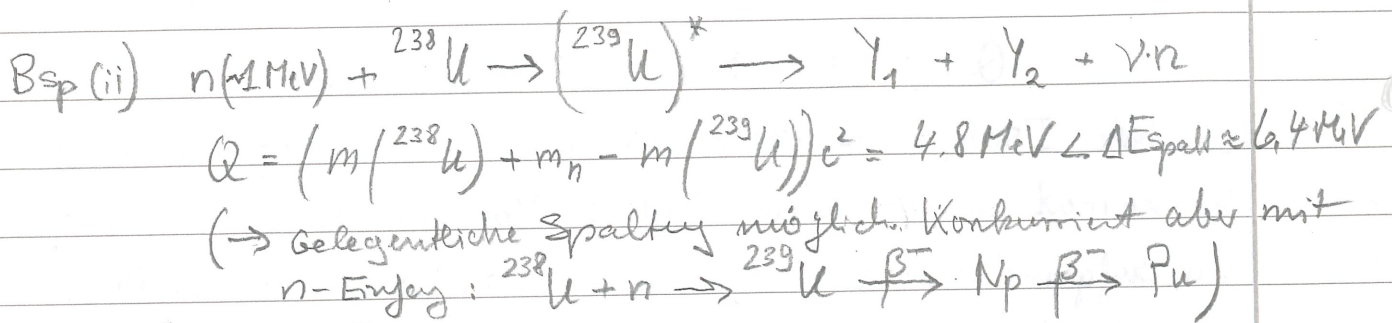 Bsp (ii) n(~1 MeV) + ²³⁸U → (²³⁹U)* → Y₁ + Y₂ + ν·n
Q = (m(²³⁸U) + mₙ - m(²³⁹U))c² = 4.8 MeV < ΔEspalt ≈ 6,4 MeV
(→ Gelegentliche Spaltung möglich. Konkurriert aber mit
n-Einfang: ²³⁸U + n → ²³⁹U β⁻→ Np β⁻→ Pu)